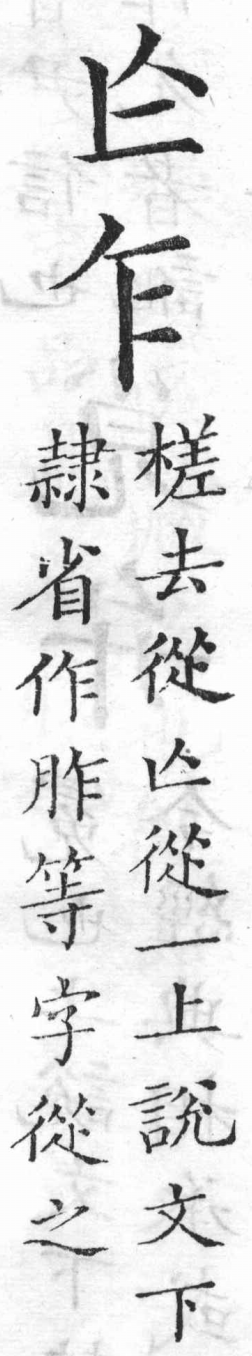 乍
槎去從亾從一上説文下
隸省作胙等字從之